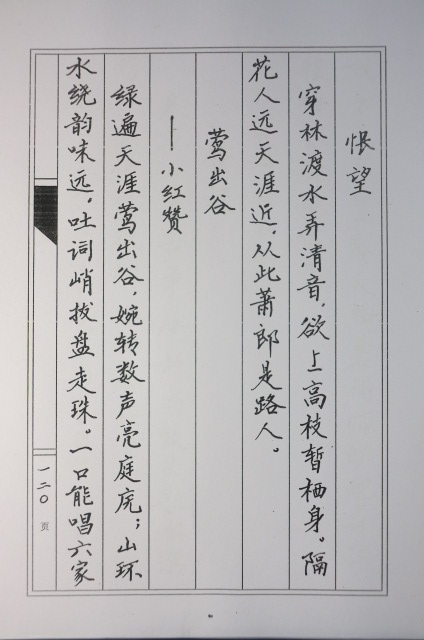 恨望
穿林渡水弄清音，欲上高枝暂栖身。隔
花人远天涯近，从此萧郎是路人。
莺出谷
——小红赞
绿遍天涯莺出谷，婉转数声亮庭庑；山环
水绕韵味远，吐词峭拔盘走珠。一口能唱六家
一二〇页